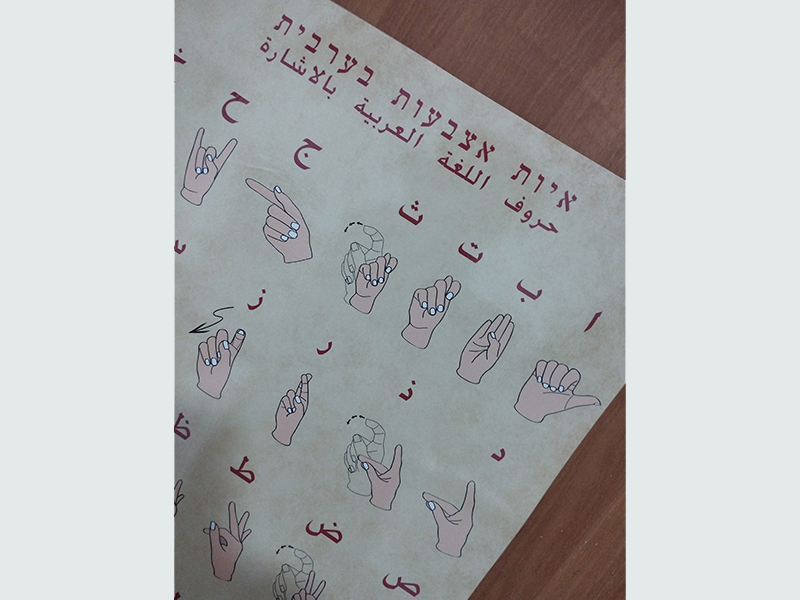 איות אצבעות בערבית
حروف اللغة العربية بالاشارة
ا ب ت ث ج ح
د ذ ر ز
ص ض ط ظ